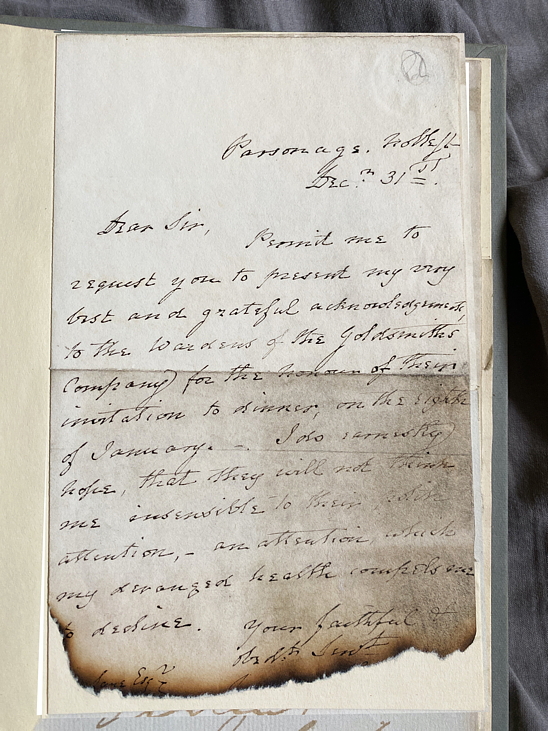 Parsonage.
Decr. 31st.
Dear Sir,
Permit me to
request you to present my very
best and grateful acknowledgements,
to the Wardens of the Goldsmiths'
Company) for the honour of their
invitation to dinner, on the eighth
of January. –. I do earnestly
hope, that they will not think
me insensible to their
attention, – an attention, which
my deranged health compels me
to decline. Your faithful &
obedt. Servt.
Esqr.